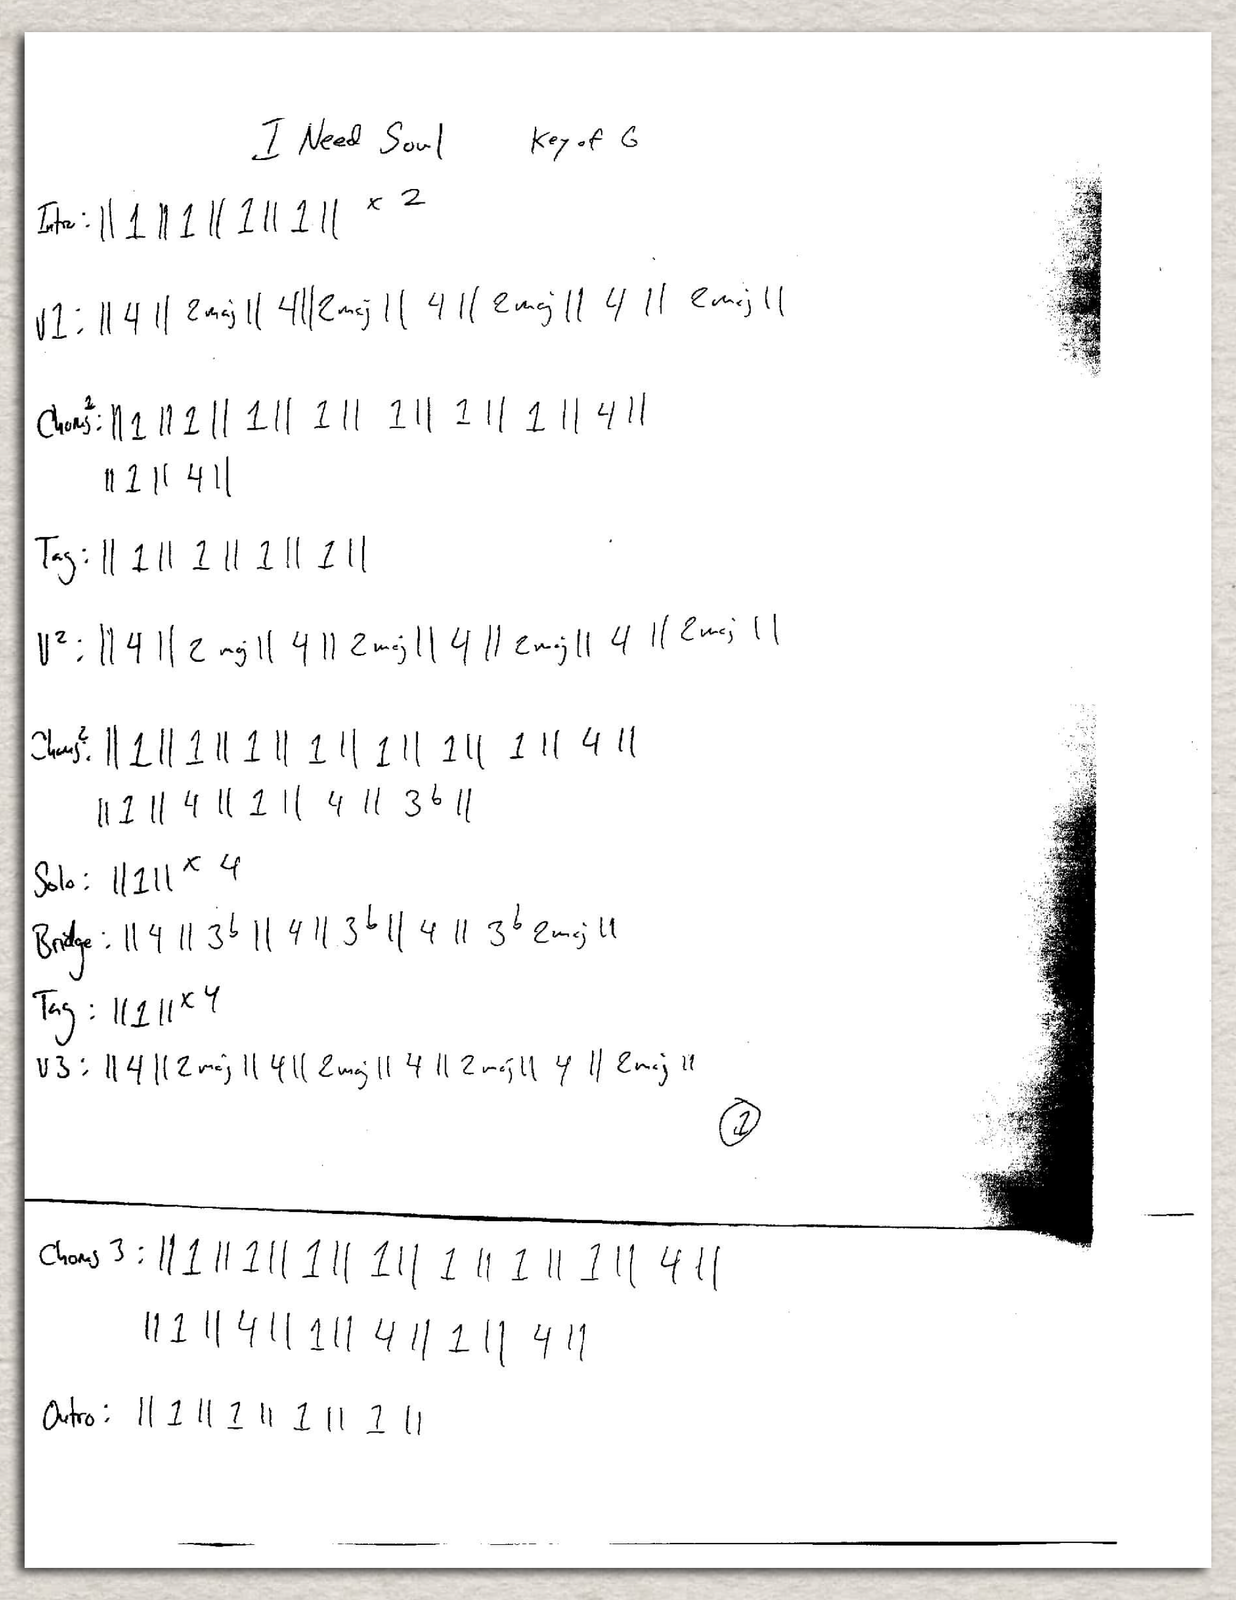 I Need Soul Key of G
Intro: || 1 || 1 || 1 || 1 || x 2
V1: || 4 || 2maj || 4 || 2maj || 4 || 2maj || 4 || 2maj ||
Chorus 1: || 1 || 1 || 1 || 1 || 1 || 1 || 1 || 4 ||
|| 1 || 4 ||
Tag: || 1 || 1 || 1 || 1 ||
V2: || 4 || 2maj || 4 || 2maj || 4 || 2maj || 4 || 2maj ||
Chorus 2: || 1 || 1 || 1 || 1 || 1 || 1 || 1 || 4 ||
|| 1 || 4 || 1 || 4 || 3b ||
Solo: || 1 || x 4
Bridge: || 4 || 3b || 4 || 3b || 4 || 3b 2maj ||
Tag: || 1 || x 4
V3: || 4 || 2maj || 4 || 2maj || 4 || 2maj || 4 || 2maj ||
1
Chorus 3: || 1 || 1 || 1 || 1 || 1 || 1 || 1 || 4 ||
|| 1 || 4 || 1 || 4 || 1 || 4 ||
Outro: || 1 || 1 || 1 || 1 ||